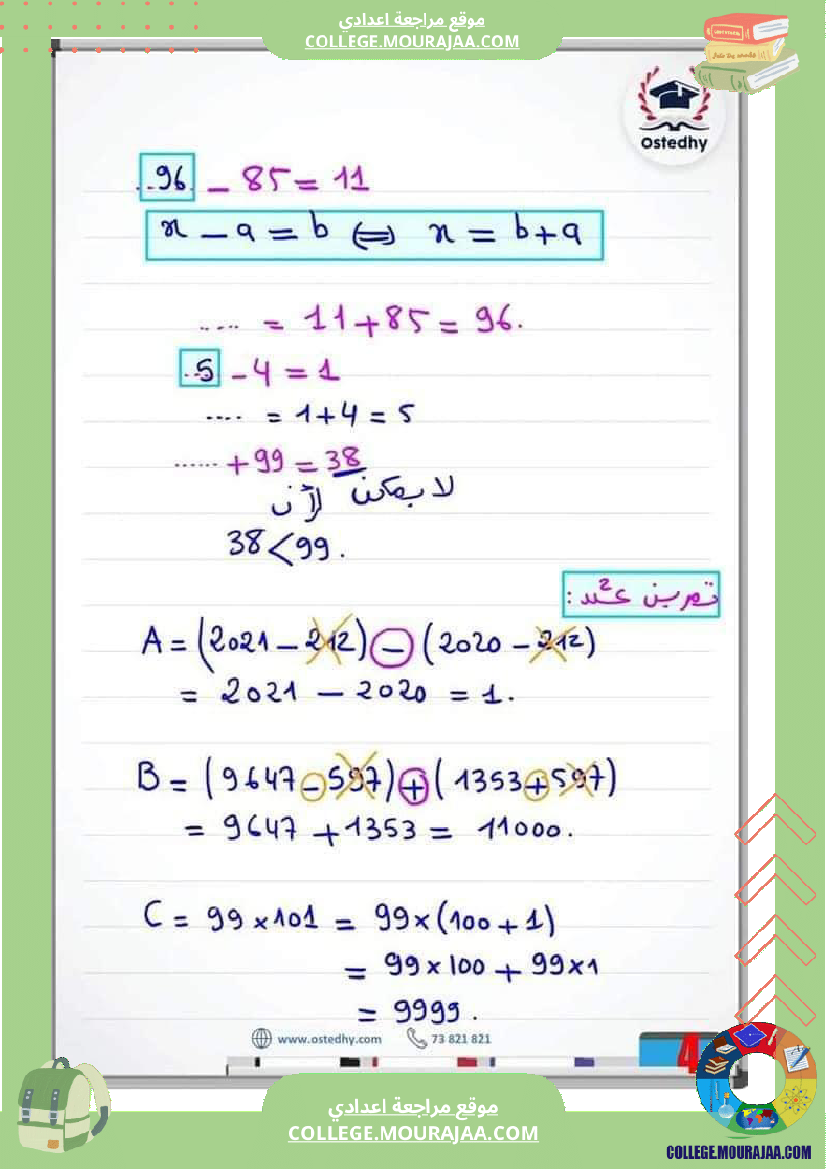 موقع مراجعة اعدادي
COLLEGE.MOURAJAA.COM
Ostedhy
..96. - 85 = 11
x - a = b ⟺ x = b + a
.... = 11 + 85 = 96.
..5 - 4 = 1
.... = 1 + 4 = 5
...... + 99 = 38
لا يمكن لأن
38 < 99.
تمرين عدد 2 :
A = (2021 - 212) - (2020 - 212)
= 2021 - 2020 = 1.
B = (9647 - 597) + (1353 + 597)
= 9647 + 1353 = 11000.
C = 99 × 101 = 99 × (100 + 1)
= 99 × 100 + 99 × 1
= 9999.
www.ostedhy.com 73 821 821
4
موقع مراجعة اعدادي
COLLEGE.MOURAJAA.COM
COLLEGE.MOURAJAA.COM